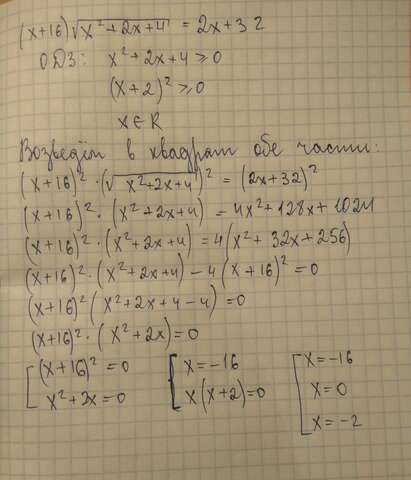 (x+16)√x²+2x+4 = 2x+32
ОДЗ: x²+2x+4 ≥ 0
(x+2)² ≥ 0
x ∈ R
Возведём в квадрат обе части:
(x+16)² · (√x²+2x+4)² = (2x+32)²
(x+16)² · (x²+2x+4) = 4x²+128x+1024
(x+16)² · (x²+2x+4) = 4(x²+32x+256)
(x+16)² · (x²+2x+4) – 4(x+16)² = 0
(x+16)² (x²+2x+4–4) = 0
(x+16)² · (x²+2x) = 0
[ (x+16)² = 0 [ x = –16 [ x = –16
x²+2x = 0 x(x+2) = 0 x = 0
x = –2